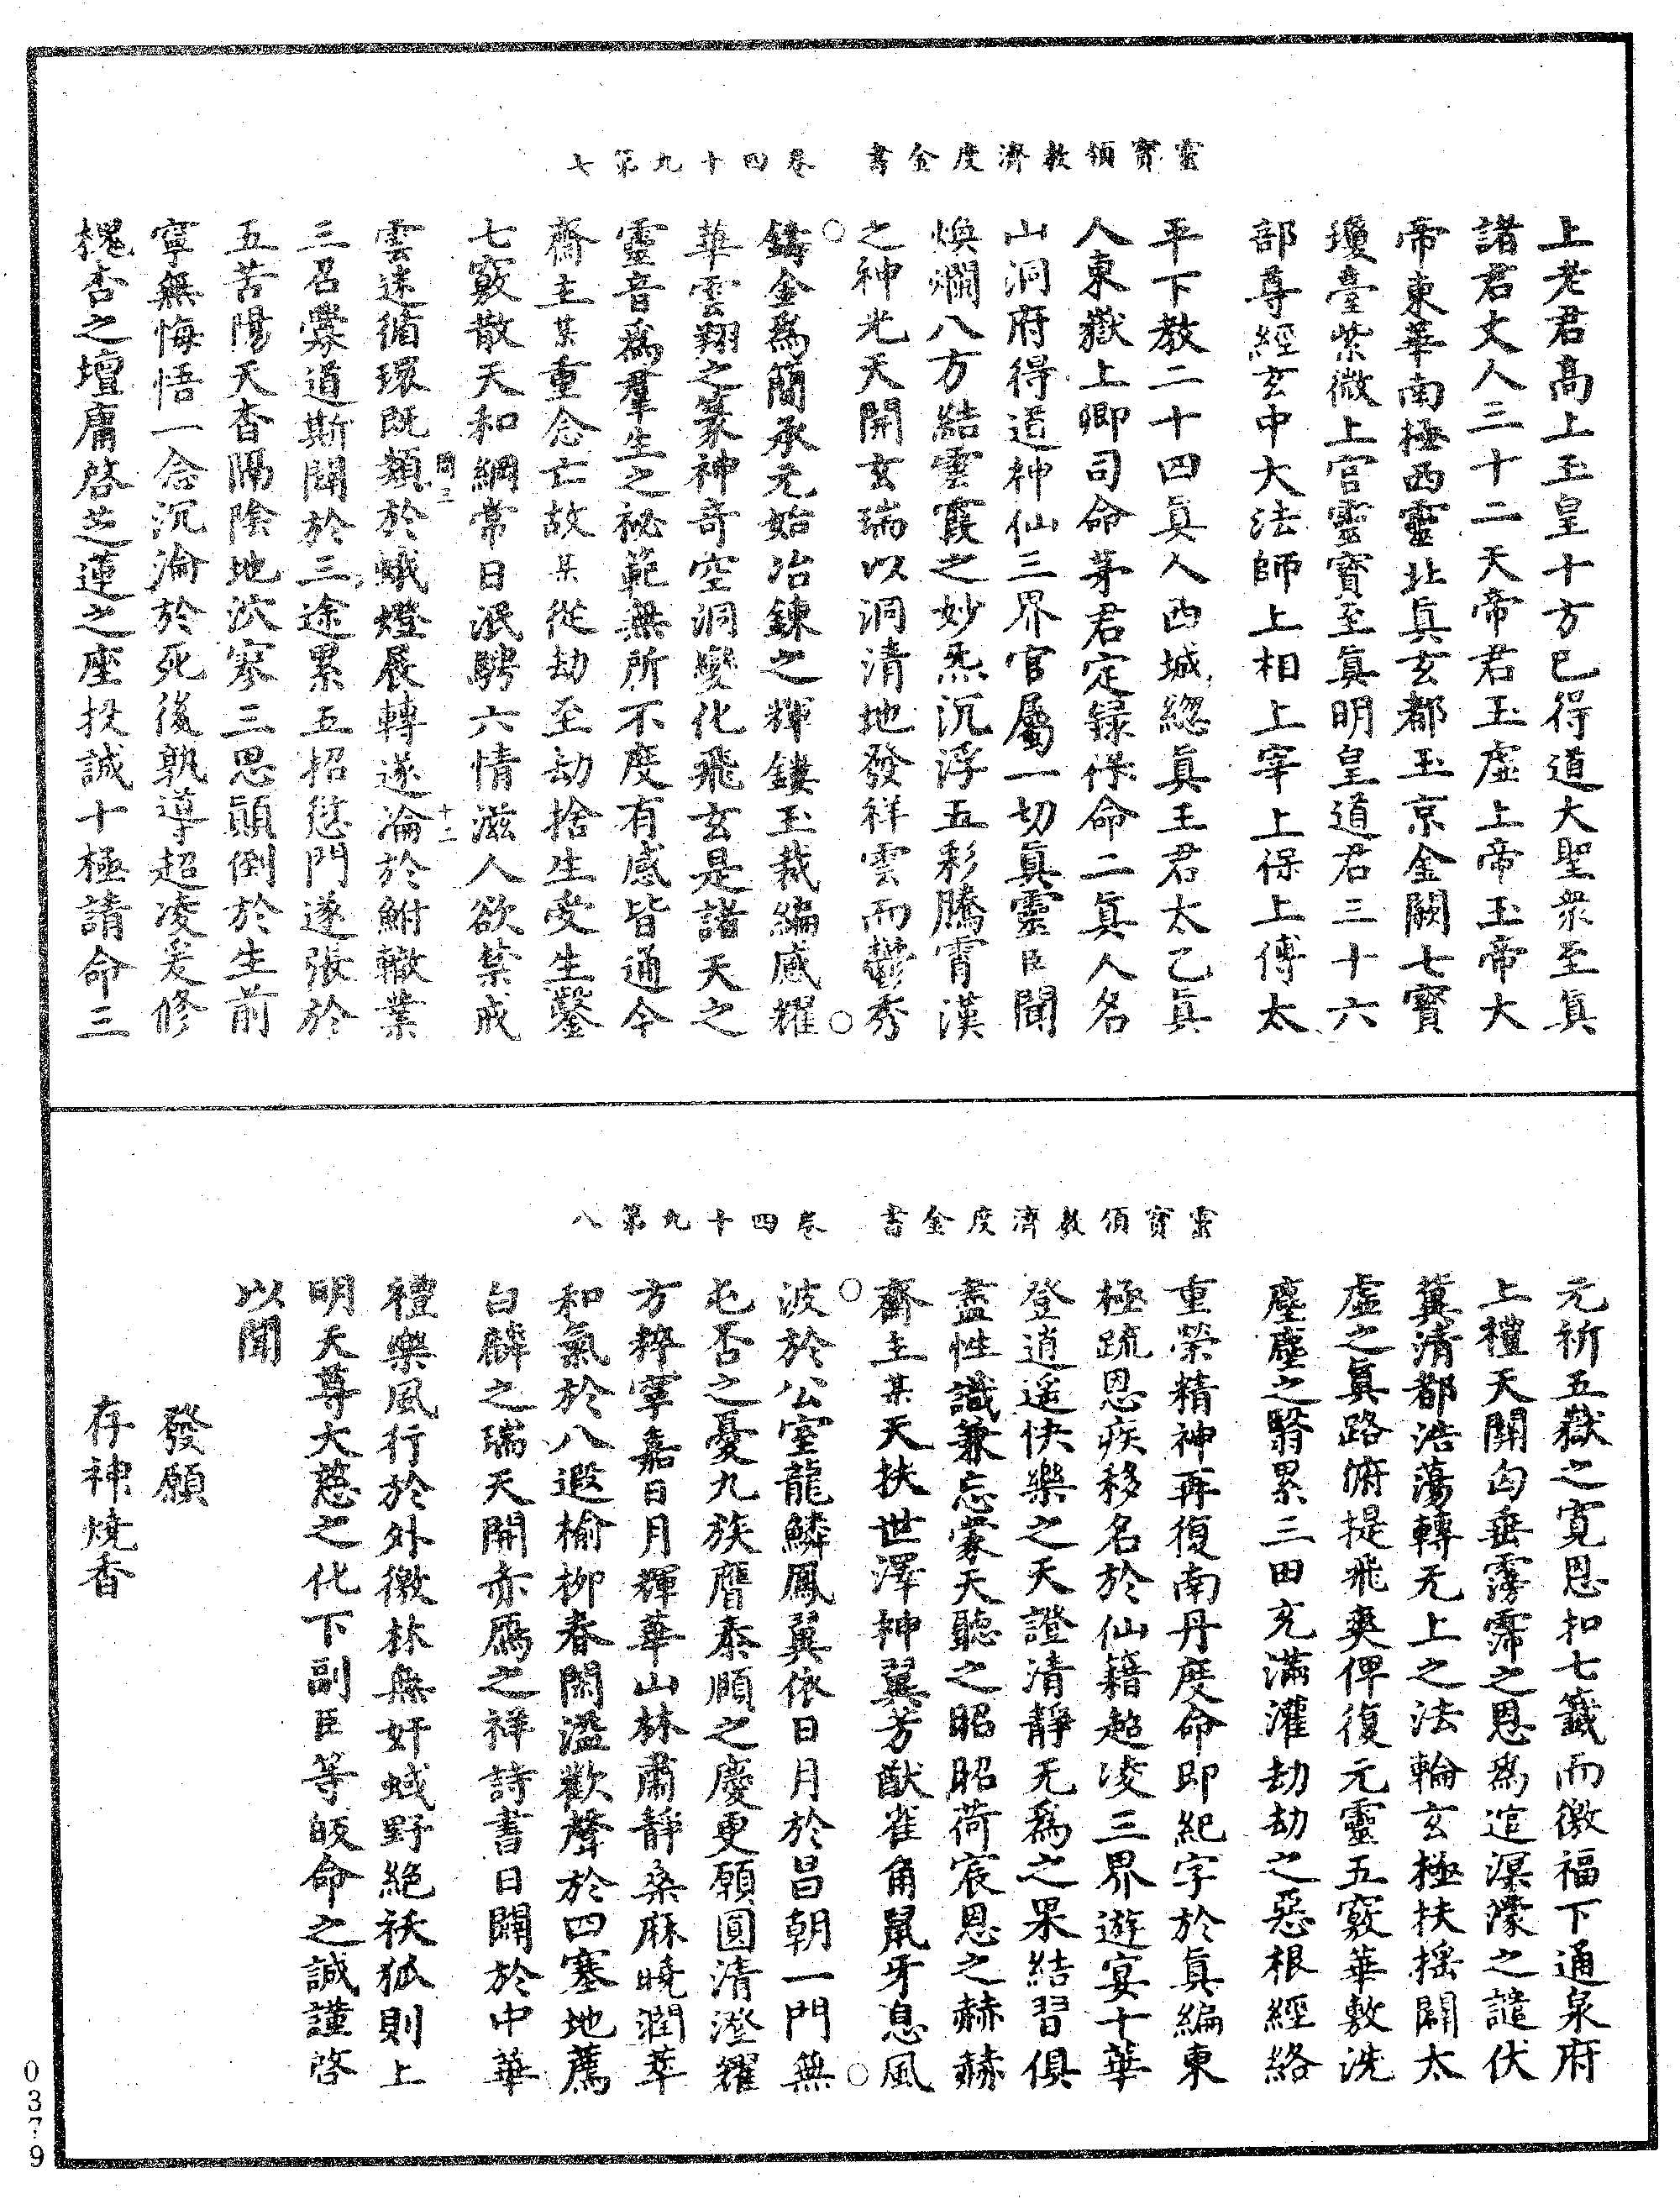 靈寶領教濟度金書　卷四十九第七
上老君高上玉皇十方已得道大聖衆至眞
諸君丈人三十二天帝君玉虛上帝玉帝大
帝東華南極西靈北眞玄都玉京金闕七寶
瓊臺紫微上宮靈寶至眞明皇道君三十六
部尊經玄中大法師上相上宰上保上傅太
平下教二十四眞人西城總眞王君太乙眞
人東嶽上卿司命茅君定錄保命二眞人名
山洞府得道神仙三界官屬一切眞靈臣聞
煥爛八方結雲霞之妙炁沉浮五彩騰霄漢
之神光天開玄瑞以洞清地發祥雲而鬱秀
○鑄金爲簡承元始冶鍊之輝鏤玉裁編感耀○
華雲翔之篆神奇空洞變化飛玄是諸天之
靈音爲羣生之祕範無所不度有感皆通今
齋主某重念亡故某從劫至劫捨生受生鑿
七竅散天和綱常日泯騁六情滋人欲禁戒
閏三　十二
雲迷循環既類於蛾燈展轉遂淪於鮒轍業
三召釁道斯闢於三途累五招愆門遂張於
五苦陽天杳隔陰地泬寥三思顛倒於生前
寧無悔悟一念沉淪於死後孰導超凌爰修
槐杏之壇庸啓芝蓮之座投誠十極請命三
靈寶領教濟度金書　卷四十九第八
元祈五嶽之寬恩扣七籖而徼福下通泉府
上禮天關匄垂霶霈之恩爲逭溟濛之譴伏
冀清都浩蕩轉无上之法輪玄極扶搖闢太
虛之眞路俯提飛爽俾復元靈五竅華敷洗
塵塵之翳累三田充滿灌劫劫之惡根經絡
重榮精神再復南丹度命即紀字於眞編東
極疏恩疾移名於仙籍超凌三界遊宴十華
登逍遥快樂之天證清靜无爲之果結習俱
盡性識兼忘蒙天聽之昭昭荷宸恩之赫赫
齋主某天扶世澤神翼芳猷雀角鼠牙息風
○波於公室龍鱗鳳翼依日月於昌朝一門無○
屯否之憂九族膺泰順之慶更願圓清澄耀
方粹寧嘉日月輝華山林肅靜桑麻曉潤莘
和氣於八遐榆柳春閑溢歡聲於四塞地薦
白麟之瑞天開赤鴈之祥詩書日闡於中華
禮樂風行於外徼林無奸蜮野絕祅狐則上
明天尊大慈之化下副臣等皈命之誠謹啓
以聞
發願
存神燒香
0379